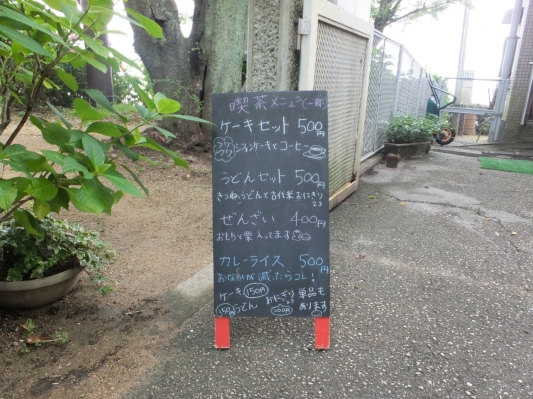 喫茶メニュー(一部)
ケーキセット 500円
シフォンケーキとコーヒー
うどんセット 500円
きつねうどんと古代米おにぎり
ぜんざい 400円
おもちと栗入ってます
カレーライス 500円
おなかが減ったらコレ!
ケーキ 150円 おにぎり 単品も
うどん あります